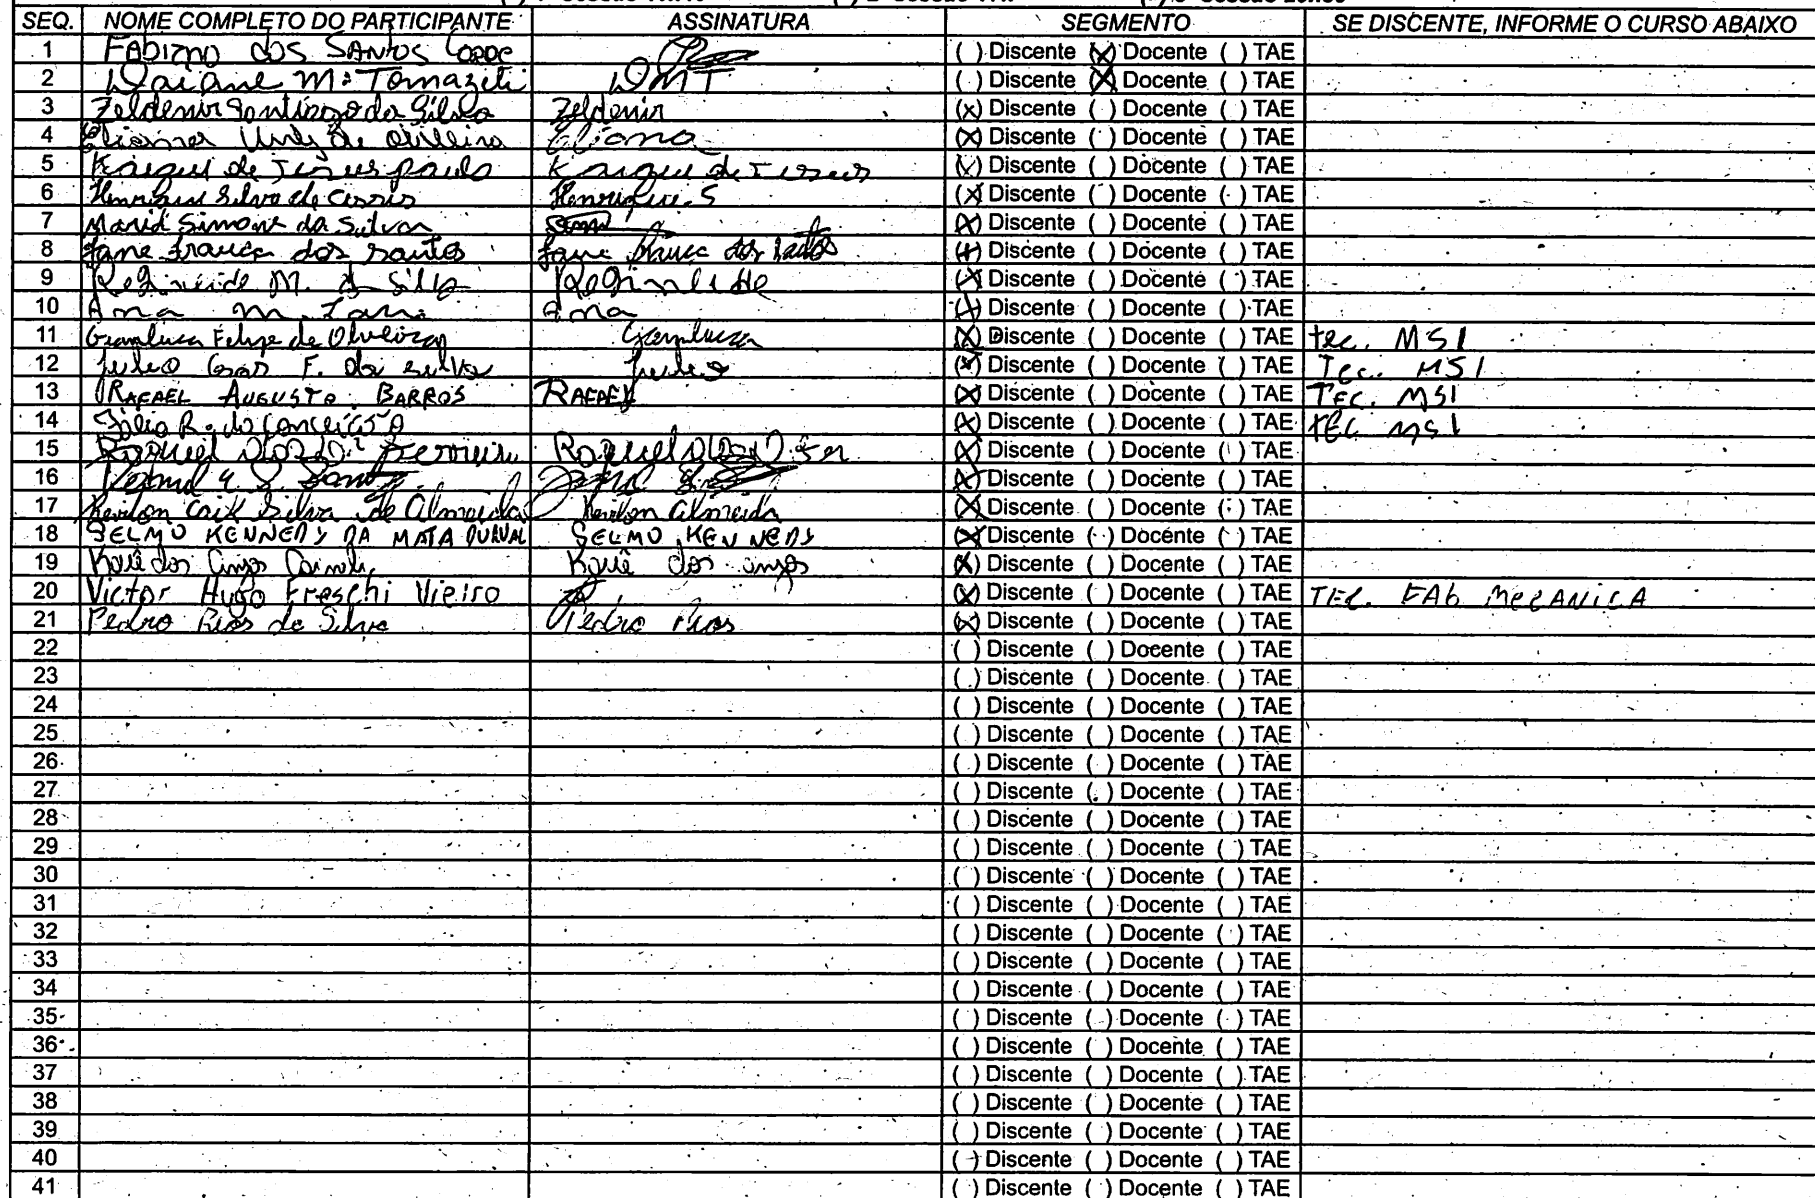 SEQ. NOME COMPLETO DO PARTICIPANTE ASSINATURA SEGMENTO SE DISCENTE, INFORME O CURSO ABAIXO
1 Fabiano dos Santos ( ) Discente (X) Docente ( ) TAE
2 Daiane Mª Tomazeti DMT ( ) Discente (X) Docente ( ) TAE
3 Zeldenir Santiago da Silva Zeldenir (x) Discente ( ) Docente ( ) TAE
4 de Oliveira (X) Discente ( ) Docente ( ) TAE
5 Kaique de Jesus Paulo Kaique de Jesus (X) Discente ( ) Docente ( ) TAE
6 Henrique Silva de Henrique. S (X) Discente ( ) Docente ( ) TAE
7 Maria Simone da Silva (X) Discente ( ) Docente ( ) TAE
8 Jane França dos Santos Jane França dos Santos (X) Discente ( ) Docente ( ) TAE
9 Regineide M. da Silva Regineide (X) Discente ( ) Docente ( ) TAE
10 Ana M. Ana (X) Discente ( ) Docente ( ) TAE
11 Gianluca Felipe de Oliveira Gianluca (X) Discente ( ) Docente ( ) TAE tec. MSI
12 Julio F. da Silva Julio (X) Discente ( ) Docente ( ) TAE Tec. MSI
13 RAFAEL AUGUSTO BARROS RAFAEL (X) Discente ( ) Docente ( ) TAE TEC. MSI
14 R. da Conceição (X) Discente ( ) Docente ( ) TAE TEC MSI
15 Raquel Ferreira Raquel (X) Discente ( ) Docente ( ) TAE
16 (X) Discente ( ) Docente ( ) TAE
17 Silva de Almeida Almeida (X) Discente ( ) Docente ( ) TAE
18 SELMO KENNEDY DA MATA SELMO KENNEDY (X) Discente ( ) Docente ( ) TAE
19 Kauê dos Anjos Kauê dos anjos (X) Discente ( ) Docente ( ) TAE
20 Victor Hugo Freschi Vieiro (X) Discente ( ) Docente ( ) TAE TEC. FAB MECANICA
21 Pedro Rios da Silva Pedro Rios (X) Discente ( ) Docente ( ) TAE
22 ( ) Discente ( ) Docente ( ) TAE
23 ( ) Discente ( ) Docente ( ) TAE
24 ( ) Discente ( ) Docente ( ) TAE
25 ( ) Discente ( ) Docente ( ) TAE
26 ( ) Discente ( ) Docente ( ) TAE
27 ( ) Discente ( ) Docente ( ) TAE
28 ( ) Discente ( ) Docente ( ) TAE
29 ( ) Discente ( ) Docente ( ) TAE
30 ( ) Discente ( ) Docente ( ) TAE
31 ( ) Discente ( ) Docente ( ) TAE
32 ( ) Discente ( ) Docente ( ) TAE
33 ( ) Discente ( ) Docente ( ) TAE
34 ( ) Discente ( ) Docente ( ) TAE
35 ( ) Discente ( ) Docente ( ) TAE
36 ( ) Discente ( ) Docente ( ) TAE
37 ( ) Discente ( ) Docente ( ) TAE
38 ( ) Discente ( ) Docente ( ) TAE
39 ( ) Discente ( ) Docente ( ) TAE
40 ( ) Discente ( ) Docente ( ) TAE
41 ( ) Discente ( ) Docente ( ) TAE